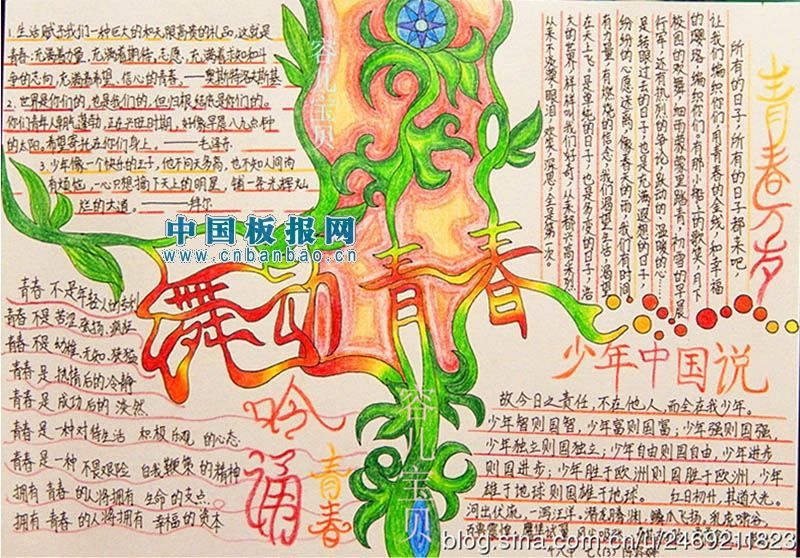 1.生活赋予我们一种巨大的和无限高贵的礼品,这就是
青春:充满着力量,充满着期待,志愿,充满着求知和斗
争的志向,充满着希望、信心的青春。——奥斯特洛夫斯基
2、世界是你们的,也是我们的,但归根结底是你们的。
你们青年人朝气蓬勃,正在兴旺时期,好像早晨八九点钟
的太阳。希望寄托在你们身上。——毛泽东
3、少年像一个快乐的王子,他不问天多高,也不知人间尚
有烦恼,一心只想摘下天上的明星,铺一条光辉灿
烂的大道。
容儿宝贝
青春万岁
所有的日子,所有的日子都来吧,
让我们编织你们,用青春的金线,和幸福
的璎珞,编织你们。有那小船上的歌笑,月下
校园的欢舞,细雨蒙蒙里踏青,初雪的早晨
行军,还有热烈的争论,跃动的、温暖的心……
是转眼过去的日子,也是充满遐想的日子,
纷纷的心愿迷离,像春天的雨,我们有时间,
有力量,有燃烧的信念,我们渴望生活,渴望
在天上飞。是单纯的日子,也是多变的日子,浩
大的世界,样样叫我们好奇,从来都兴高采烈,
从来不淡漠,眼泪,欢笑,深思,全是第一次。
中国板报网
www.cnbanbao.cn
舞动青春
青春 不是年轻人的专利
青春 不是 苦涩、张扬、疯狂
青春 不是 幼稚、无知、
青春 是 热情后的 冷静
青春 是 成功后的 淡然
青春 是一种 对待生活 积极乐观 的心态
青春 是一种 不畏艰险 自我鞭策 的精神
拥有 青春 的人将拥有 生命 的支点
拥有 青春 的人将拥有 幸福 的资本
吟诵
青春
容儿宝贝
少年中国说
故今日之责任,不在他人,而全在我少年。
少年智则国智,少年富则国富;少年强则国强,
少年独立则国独立;少年自由则国自由,少年进步
则国进步;少年胜于欧洲则国胜于欧洲,少年
雄于地球则国雄于地球。 红日初升,其道大光。
河出伏流,一泻汪洋。潜龙腾渊,鳞爪飞扬。乳虎啸谷,
blog.sina.com.cn/u/2469211323